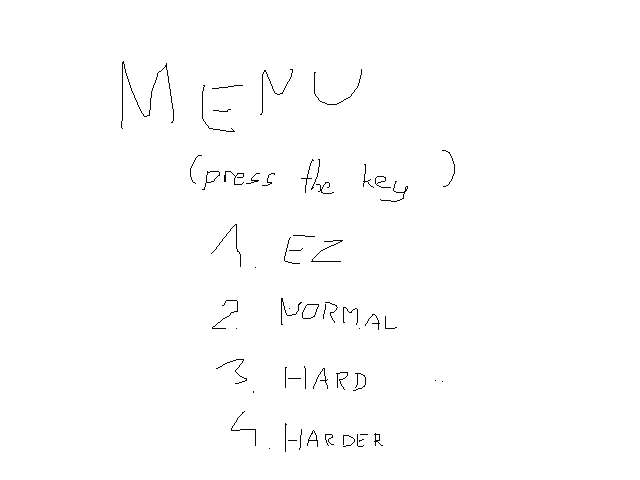 MENU
(press the key)
1. EZ
2. NORMAL
3. HARD
4. HARDER